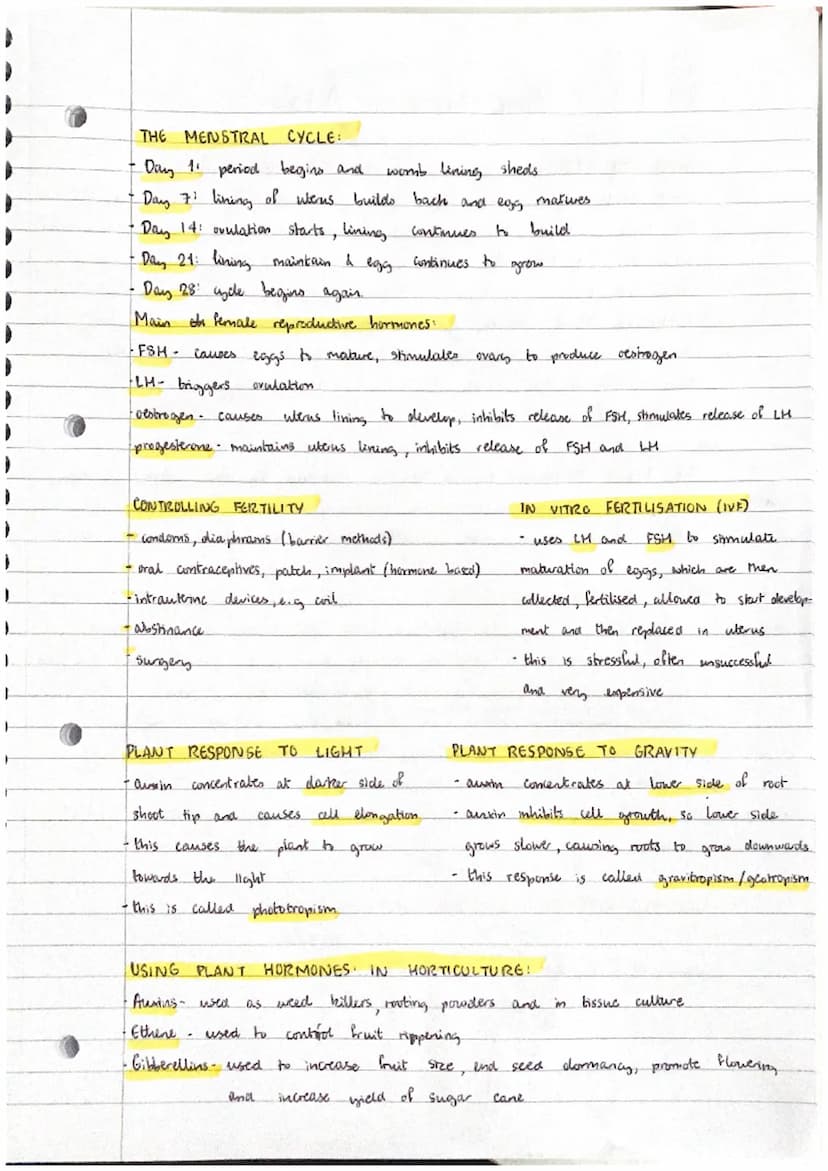 THE MENSTRAL CYCLE:
- Day 1: period begins and womb lining sheds
- Day 7: lining of uterus builds back and egg matures
- Day 14: ovulation starts, lining continues to build
- Day 21: lining maintain & egg continues to grow
- Day 28: cycle begins again
Main female reproductive hormones:
- FSH - causes eggs to mature, stimulates ovary to produce oestrogen
- LH - triggers ovulation
- oestrogen - causes uterus lining to develop, inhibits release of FSH, stimulates release of LH
progesterone - maintains uterus lining, inhibits release of FSH and LH
CONTROLLING FERTILITY
- condoms, diaphrams (barrier methods)
- oral contraceptives, patch, implant (hormone based)
- intrauterine devices, e.g coil
- abstinance
- surgery
IN VITRO FERTILISATION (IVF)
- uses LH and FSH to stimulate
maturation of eggs, which are then
collected, fertilised, allowed to start develop-
ment and then replaced in uterus
- this is stressful, often unsuccessful
and very expensive
PLANT RESPONSE TO LIGHT
- auxin concentrates at darker side of
shoot tip and causes cell elongation
- this causes the plant to grow
towards the light
- this is called phototropism
PLANT RESPONSE TO GRAVITY
- auxin concentrates at lower side of root
- auxin inhibits cell growth, so lower side
grows slower, causing roots to grow downwards
- this response is called gravitropism/geotropism
USING PLANT HORMONES IN HORTICULTURE:
- Auxins - used as weed killers, rooting powders and in tissue culture
- Ethene - used to control fruit rippening
- Gibberellins - used to increase fruit size, end seed dormancy, promote flowering
and increase yield of sugar cane